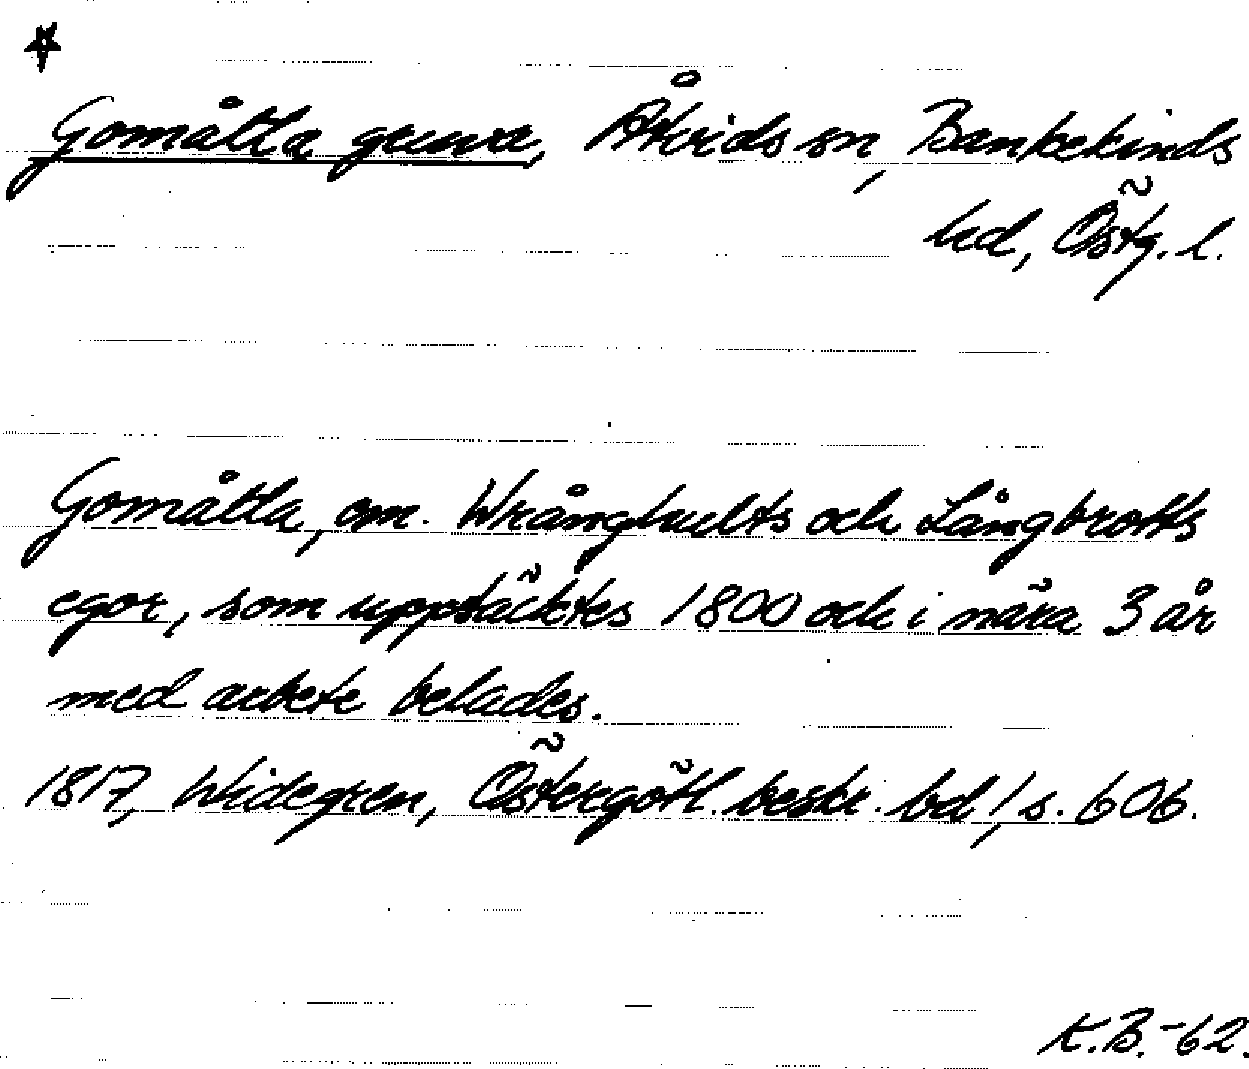 ☆
Gomåtla gruva, Åtvids sn, Bankekinds
hd, Östg. l.
Gomåtla, om. Wrånghults och Långbrotts
egor, som upptäcktes 1800 och i nära 3 år
med arbete belades.
1817, Widegren, Östergötl. beskr. bd 1, s. 606.
K.B.-62.